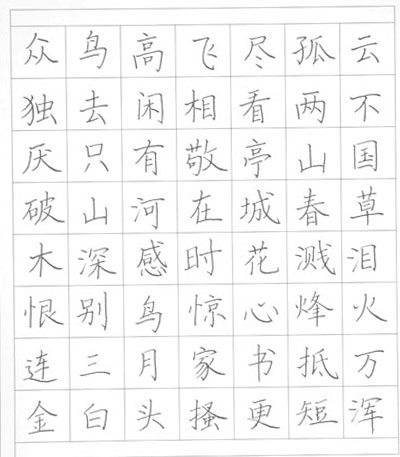 众鸟高飞尽孤云
独去闲相看两不
厌只有敬亭山国
破山河在城春草
木深感时花溅泪
恨别鸟惊心烽火
连三月家书抵万
金白头搔更短浑